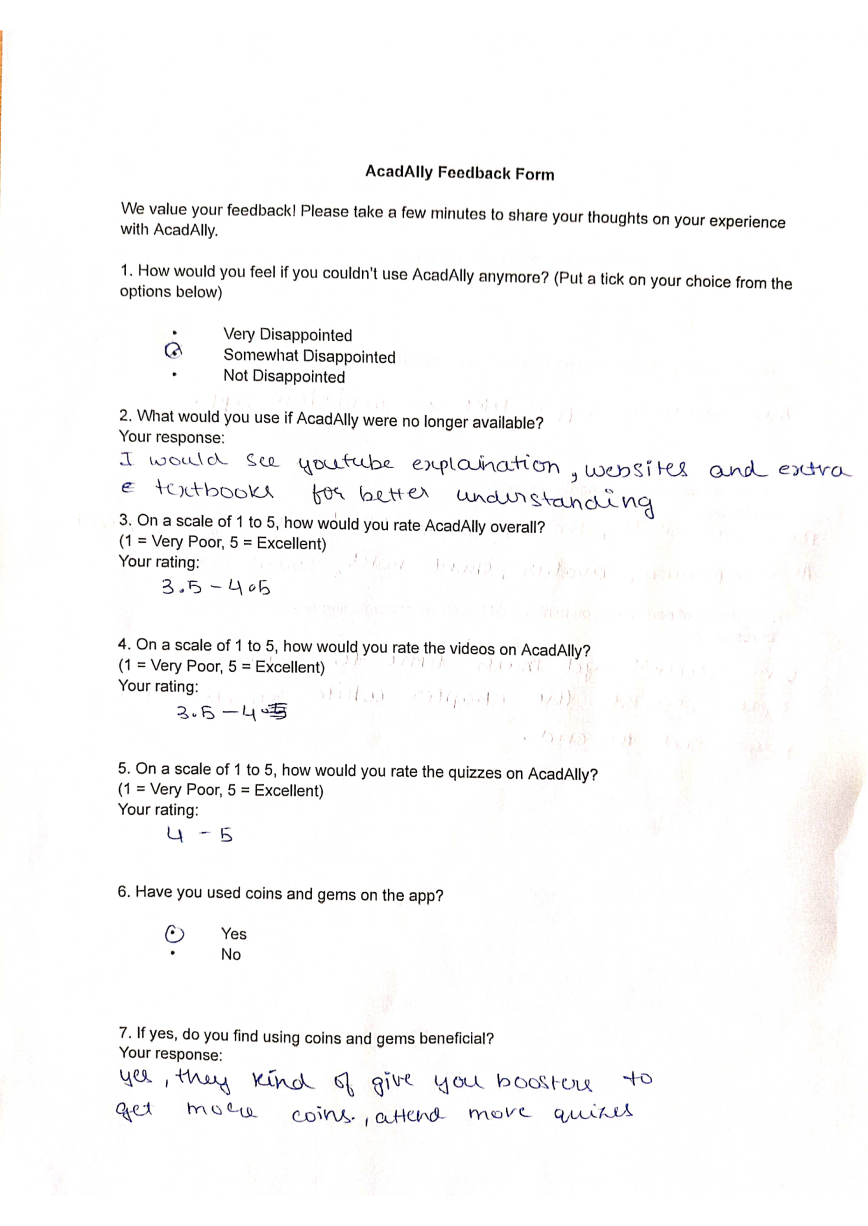 AcadAlly Feedback Form
We value your feedback! Please take a few minutes to share your thoughts on your experience
with AcadAlly.
1. How would you feel if you couldn't use AcadAlly anymore? (Put a tick on your choice from the
options below)
Very Disappointed
Somewhat Disappointed
Not Disappointed
2. What would you use if AcadAlly were no longer available?
Your response:
I would see youtube explaination, websites and extra
textbooks for better understanding
3. On a scale of 1 to 5, how would you rate AcadAlly overall?
(1 = Very Poor, 5 = Excellent)
Your rating:
3.5 - 4.5
4. On a scale of 1 to 5, how would you rate the videos on AcadAlly?
(1 = Very Poor, 5 = Excellent)
Your rating:
3.5 - 4.5
5. On a scale of 1 to 5, how would you rate the quizzes on AcadAlly?
(1 = Very Poor, 5 = Excellent)
Your rating:
4 - 5
6. Have you used coins and gems on the app?
Yes
No
7. If yes, do you find using coins and gems beneficial?
Your response:
yes, they kind of give you boosters to
get more coins., attend more quizes